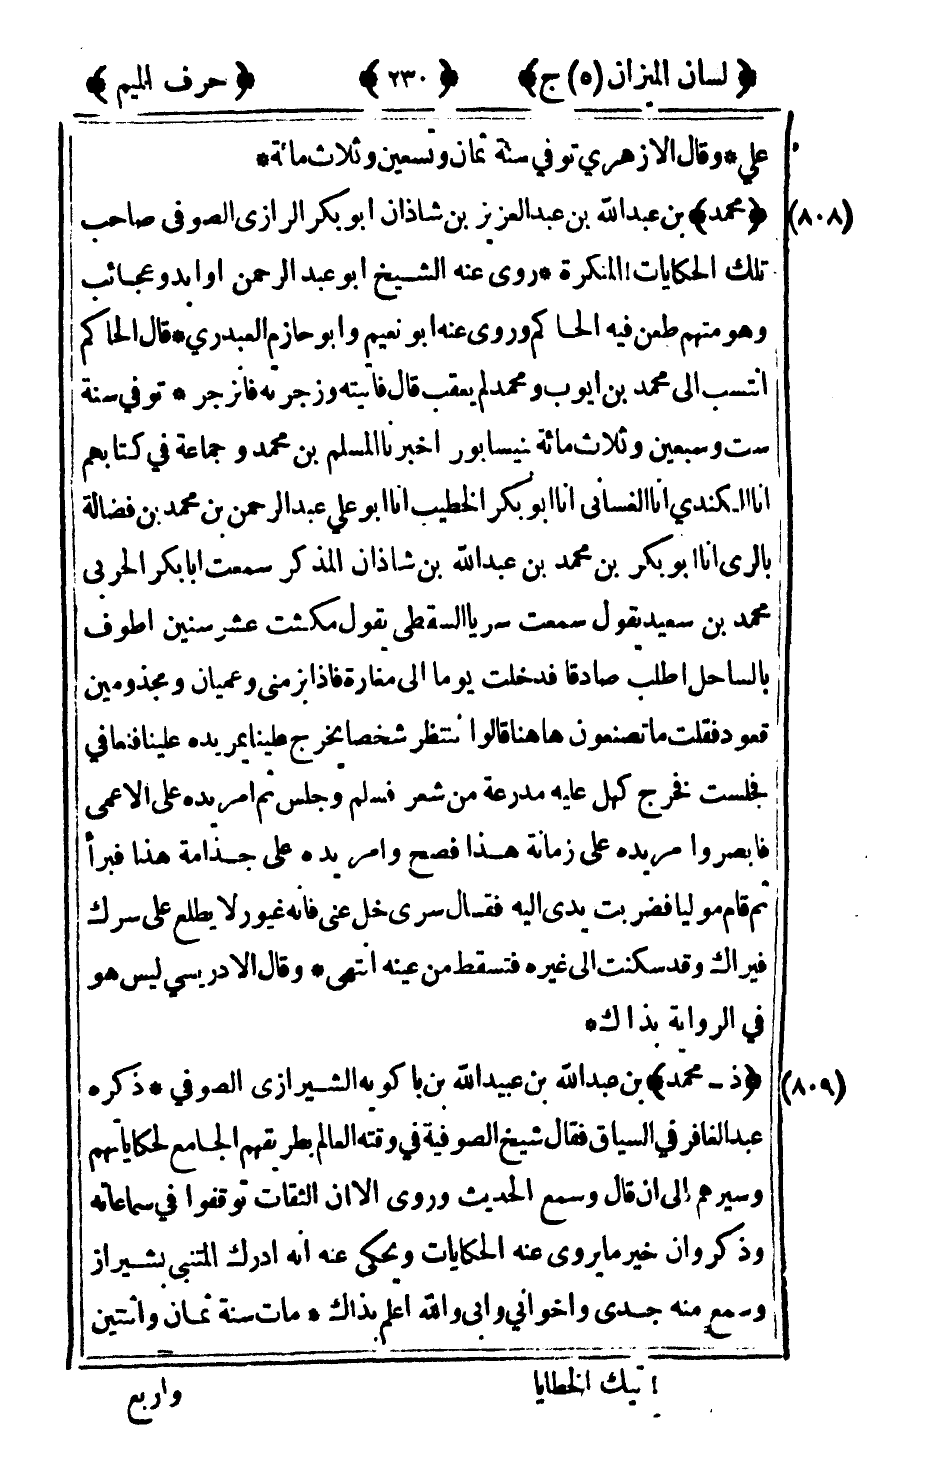 ﴿ لسان الميزان (٥) ج﴾ ﴿ ٢٣٠ ﴾ ﴿ حرف الميم ﴾
علي * وقال الازهري توفي سنة ثمان وتسعين وثلاث مائة *
(٨٠٨) ﴿محمد﴾ بن عبدالله بن عبدالعزيز بن شاذان ابوبكر الرازى الصوفى صاحب
تلك الحكايات المنكرة * روى عنه الشيخ ابو عبد الرحمن اوابد وعجائب
وهو متهم طعن فيه الحاكم وروى عنه ابو نعيم وابو حازم العبدري * قال الحاكم
انتسب الى محمد بن ايوب ومحمد لم يعقب قال فاتيته وزجرته فانزجر * توفي سنة
ست وسبعين وثلاث مائة بنيسابور اخبرنا المسلم بن محمد و جماعة في كتابهم
انا الكندي انا الغسانى انا ابو بكر الخطيب انا ابو علي عبدالرحمن بن محمد بن فضالة
بالرى انا ابو بكر بن محمد بن عبدالله بن شاذان المذكر سمعت ابابكر الحربى
محمد بن سعيد يقول سمعت سريا السقطى يقول مكثت عشر سنين اطوف
بالساحل اطلب صادقا فدخلت يوما الى مغارة فاذا بزمنى وعميان ومجذومين
قعود فقلت ما تصنعون هاهنا قالوا ننتظر شخصا يخرج علينا يمر يده علينا فنعافي
فجلست فخرج كهل عليه مدرعة من شعر فسلم وجلس ثم امر يده على الاعمى
فابصر وا مر يده على زمانة هذا فصح وامر يده على جذامة هذا فبرأ
ثم قام موليا فضربت يدى اليه فقال سرى خل عنى فانه غيور لا يطلع على سرك
فيراك وقد سكنت الى غيره فتسقط من عينه انتهى * وقال الادريسي ليس هو
في الرواية بذاك *
(٨٠٩) ﴿ذ ـ محمد﴾ بن عبدالله بن عبيدالله بن باكويه الشيرازى الصوفي * ذكره
عبدالغافر في السياق فقال شيخ الصوفية في وقته العالم بطريقهم الجامع لحكاياتهم
وسيرهم الى ان قال وسمع الحديث وروى الا ان الثقات توقفوا في سماعاته
وذكروان خير ما يروى عنه الحكايات ويحكى عنه انه ادرك المتنبى بشيراز
وسمع منه جدى واخواني وابى والله اعلم بذاك * مات سنة ثمان واثنتين
١ تيك الخطايا
واربع